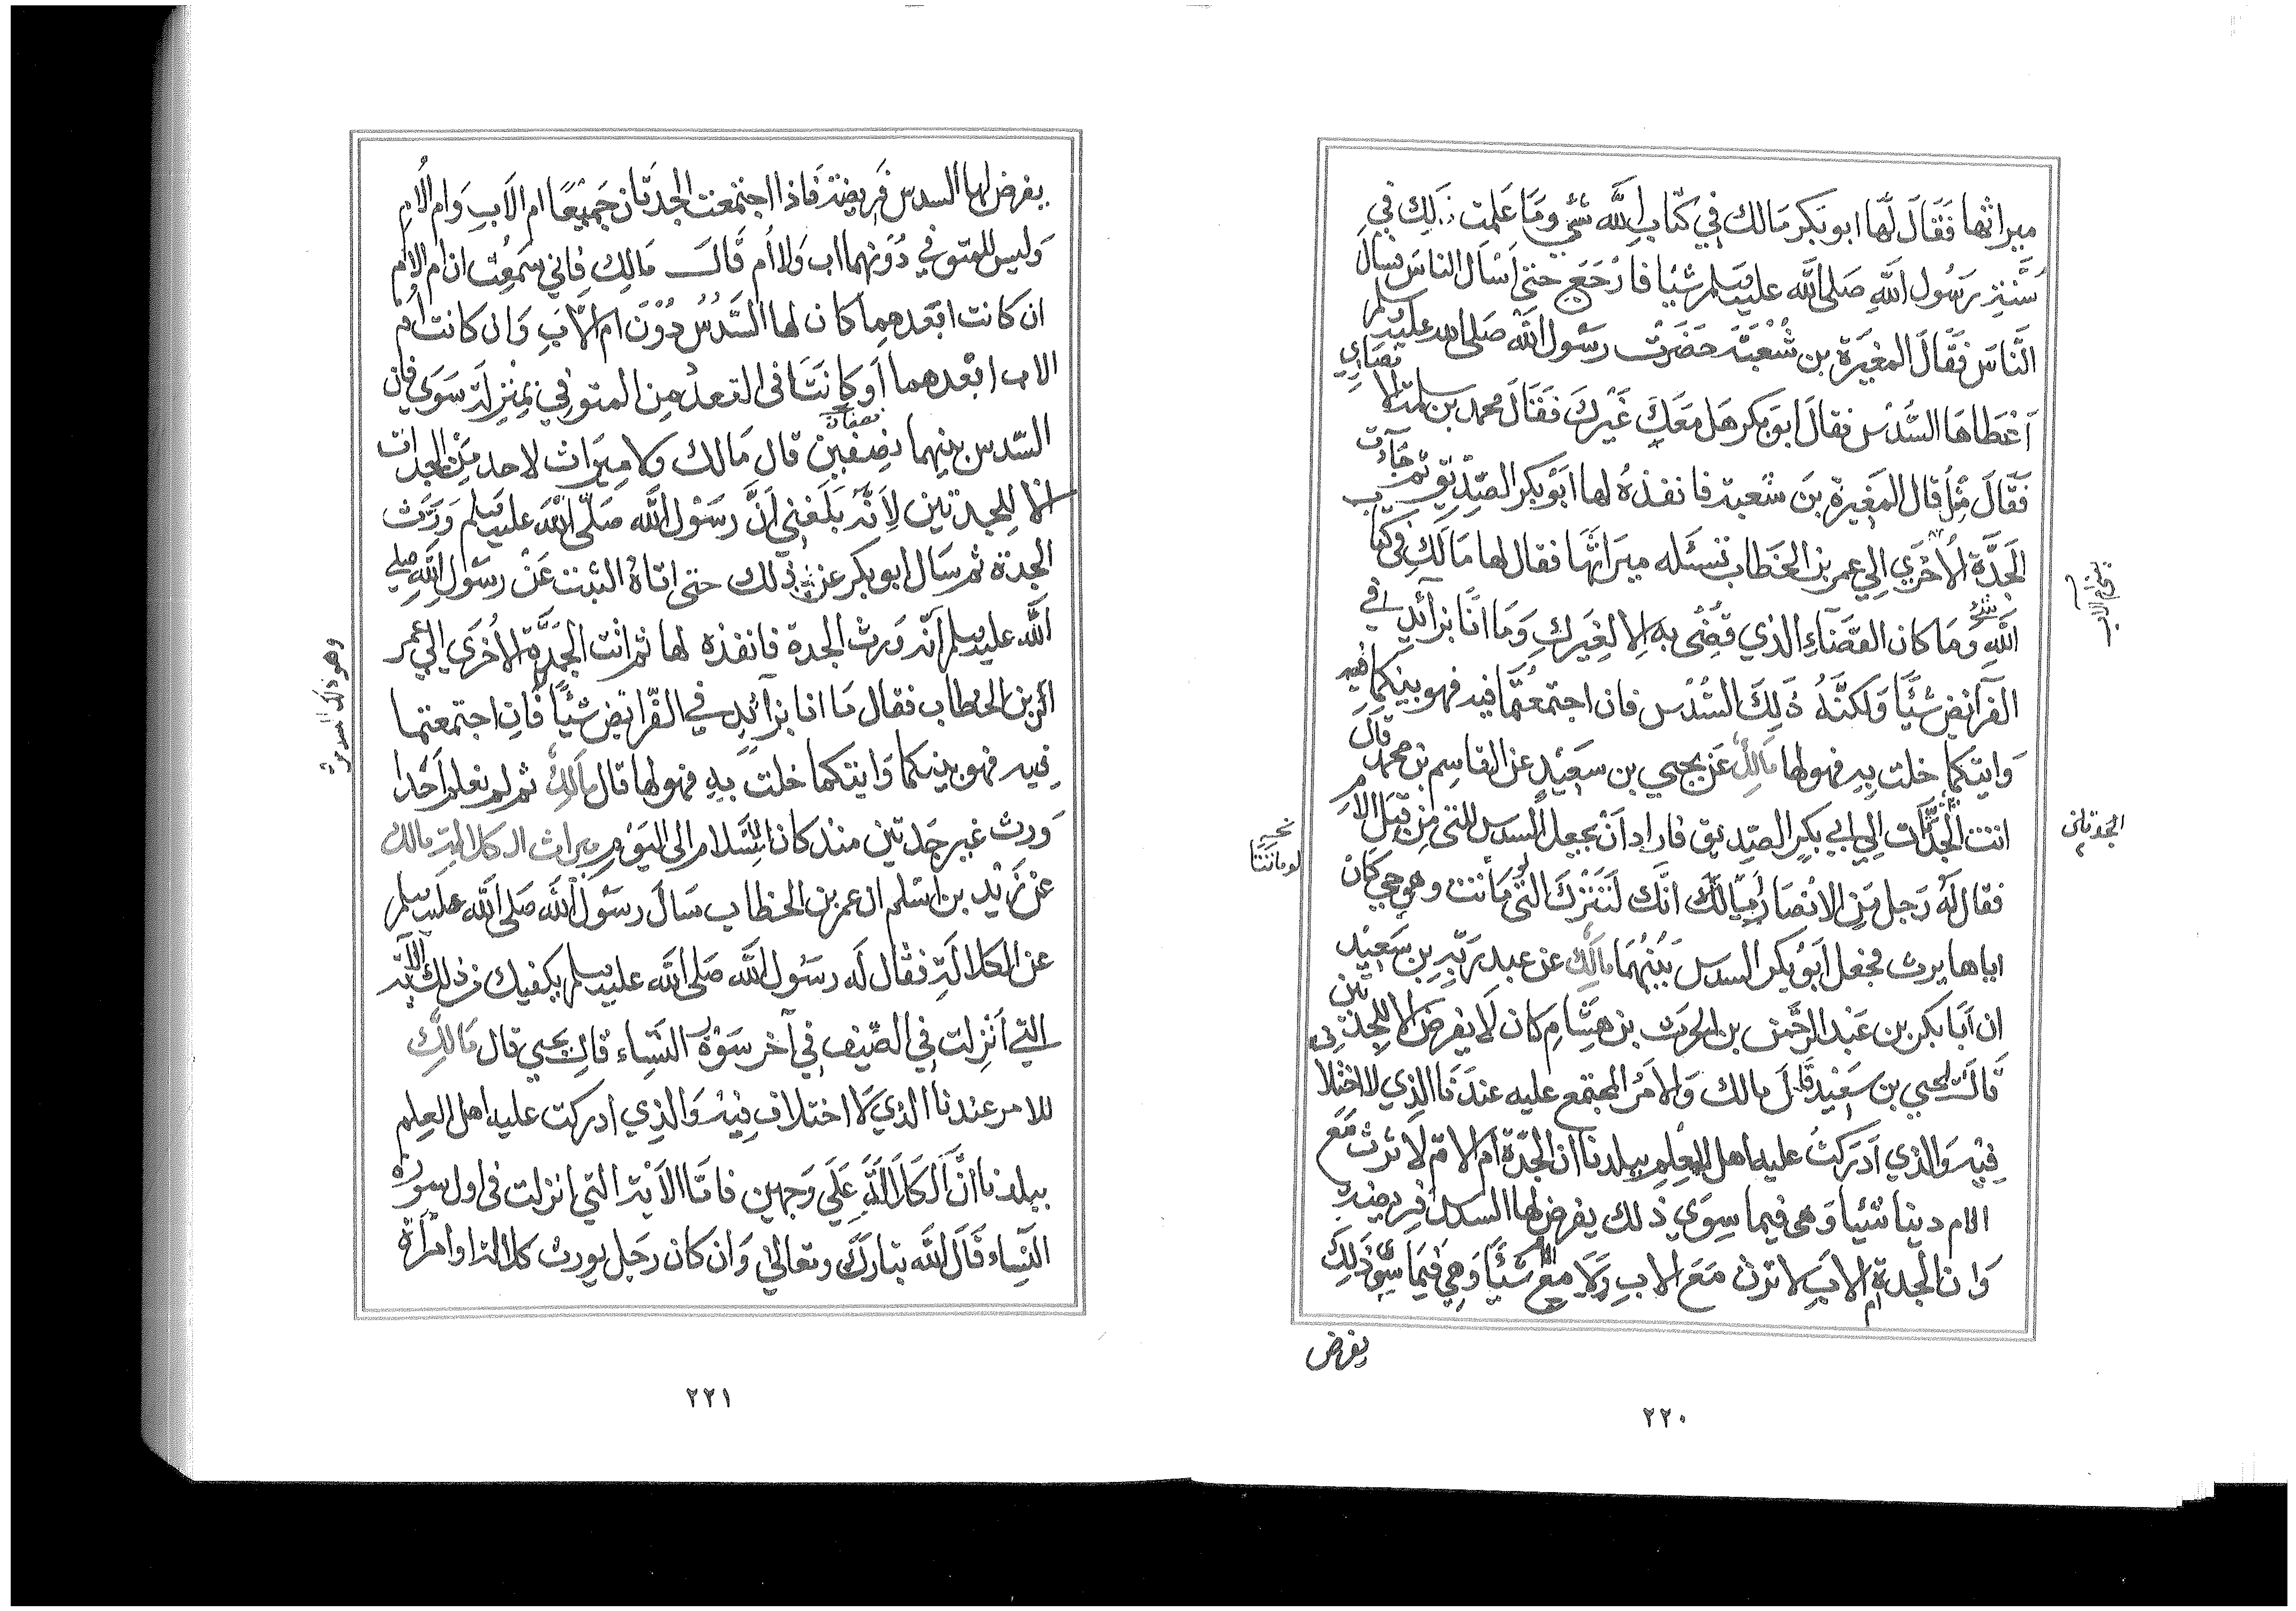 ميراثها فَقَالَ لَهَا ابو بَكر مَالك في كتَابِ اللَّه شئ ومَا عَلمت ذلك في
سُنَّةِ رَسُول اللَّهِ صَلى اللَّه عليه وسلم شَيْا فارْجَعي حتى اسْأل الناسَ فسأل
النَّاسَ فقَالَ المغيَرة بن شُعْبَة حَضَرتُ رسَول اللَّه صَلى الله عليه وسلم
اَعْطاهَا السُّدُسَ فقال ابَو بكر هَل مَعَكَ غَيْركَ فَقَالَ محمد بن مسلمة الانصاري
فقَالَ مِثْل قال المغيرة بنَ شعبة فانفذهُ لها ابَوْ بكر الصِّدِيق ثم جَآءت
الجَدَّة الاُخْرَي الي عمر بن الخَطاب تسئله ميراثهَا فقال لها مَالَكِ في كتاب
اللَّهِ شئ وَمَا كان القضَاءِ الذي قُضَى به الا لغَيَركِ وَمَا انَا بزائدٍ في
الفرائض شَيْئًا وَلكنَّهُ ذَلِكَ السُدُس فان اجتمعُتمَا فيه فهو بينكما
وَايتكما خلت بِه فهو لها مالك عَن يحيي بن سَعيْدٍ عن القاسِم بن محمد قال
اتت الجَدَّتَان الي ابي بكرٍ الصِّدِيق فاراد اَنْ يجعل السدس للتي مِن قبَل الام
فقال لَهُ رَجل مَن الانصَار اَمَا انَّك لَتَتْرك التى لو مَاتت وهو حي كَان
اياها يرث فجعل ابَوْ بكر السدس بَيْنَهُمَا مالك عن عبد رَبِّهِ بن سَعيْدٍ
ان اَبَا بكر بن عَبْد الرَّحْمن بن الحرث بن هشَامٍ كان لَا يفرض الا للجدتين
قَالَ يحيي بن سَعْيد قال مالك وَالامَرُ المجتمع عليه عندَنَا الذِي لا اختلاف
فيهِ وَالذي اَدَركتُ عليه اهل العِلمِ ببلدنا ان الجَدّة ام الامّ لَا ترث مَع
الام دينا شَيئا وَهى فيما سِوَي ذلك يفرض لها السدس فريضة
وَان الجدة ام الاَبِ لا ترث مَعَ الاب وَلَا مَعَ الام شَيْئًا وَهي فيَما سِوَى ذَلِكَ
يفرض
الجدتان
لو ماتتا
٢٢٠
يفرض لها السدس فَريضة فَاذا اجتمعت الجدتان جَمْيعًا ام الاَبِ وَام الاُمِ
وَليس للمتوفي دُوَنهما اب وَلا اُم قَالَ مَالِك فاني سَمعْتُ ان ام الام
ان كانت اقعَدهما كان لها السُّدُسُ دُوْن ام الاَبِ وَان كانت ام
الاب اقعْدهما او كانَتَا فى القعدد مِن المتوفي بمنزلَة سَوَي فان
السّدس بينهما نصْفين قال مَالك ولا ميَراث لاحد مَن الجدات
الا لِلجدتين لِاَنَّه بَلَغني اَنَّ رسَوْل اللَّه صَلّى اللَّه عليه وسلم وَرَّث
الجدة ثم سَال ابو بكر عن ذلك حتى اتاهُ الثبت عَنْ رسَول اللَّهِ صلى
اللَّه عليه وسلم اَنّه ورث الجدة فانفذه لها ثم اتت الجَدَّة الاُخرَي الي عمر
بن الخطاب فقال مَا انا بزآئِدٍ في الفرائِض شَيْئًا فَانِ اجتمعتما
فيه فهو بينكما وَايتكما خلت بِهِ فهو لها قال مَالِك ثم لم نعلم اَحَدا
وَرث غير جَدتين منذ كان الاِسْلام الى اليَوْم ميراث الكلالة مالك
عَن زَيْد بن اسْلم ان عمر بن الخطاب سَال رَسُوْل اللَّه صَلى اللَّه عليه وسلم
عن الكلالَةِ فقال لَه رسَوُل اللَّه صَلى اللَّه عليه وسلم يكفيك من ذلك الآية
التي اَنْزِلت في الصَّيف في آخر سَوْرة النّسِاء قال يحيي قال مَالك
الامر عندنا الذي لَا اختلاف فيه وَالذي ادركت عليه اهل العِلم
ببلدنا انَّ الكَلَالَةَ عَلَي وَجهين فامَّا الاَيَة التي انزلت في اول سورة
النّسِاء قَالَ اللَّه تبارَكَ وتعالي وَان كان رَجل يورث كلالة او امْرَأة
وهو ذلك السدس
٢٢١